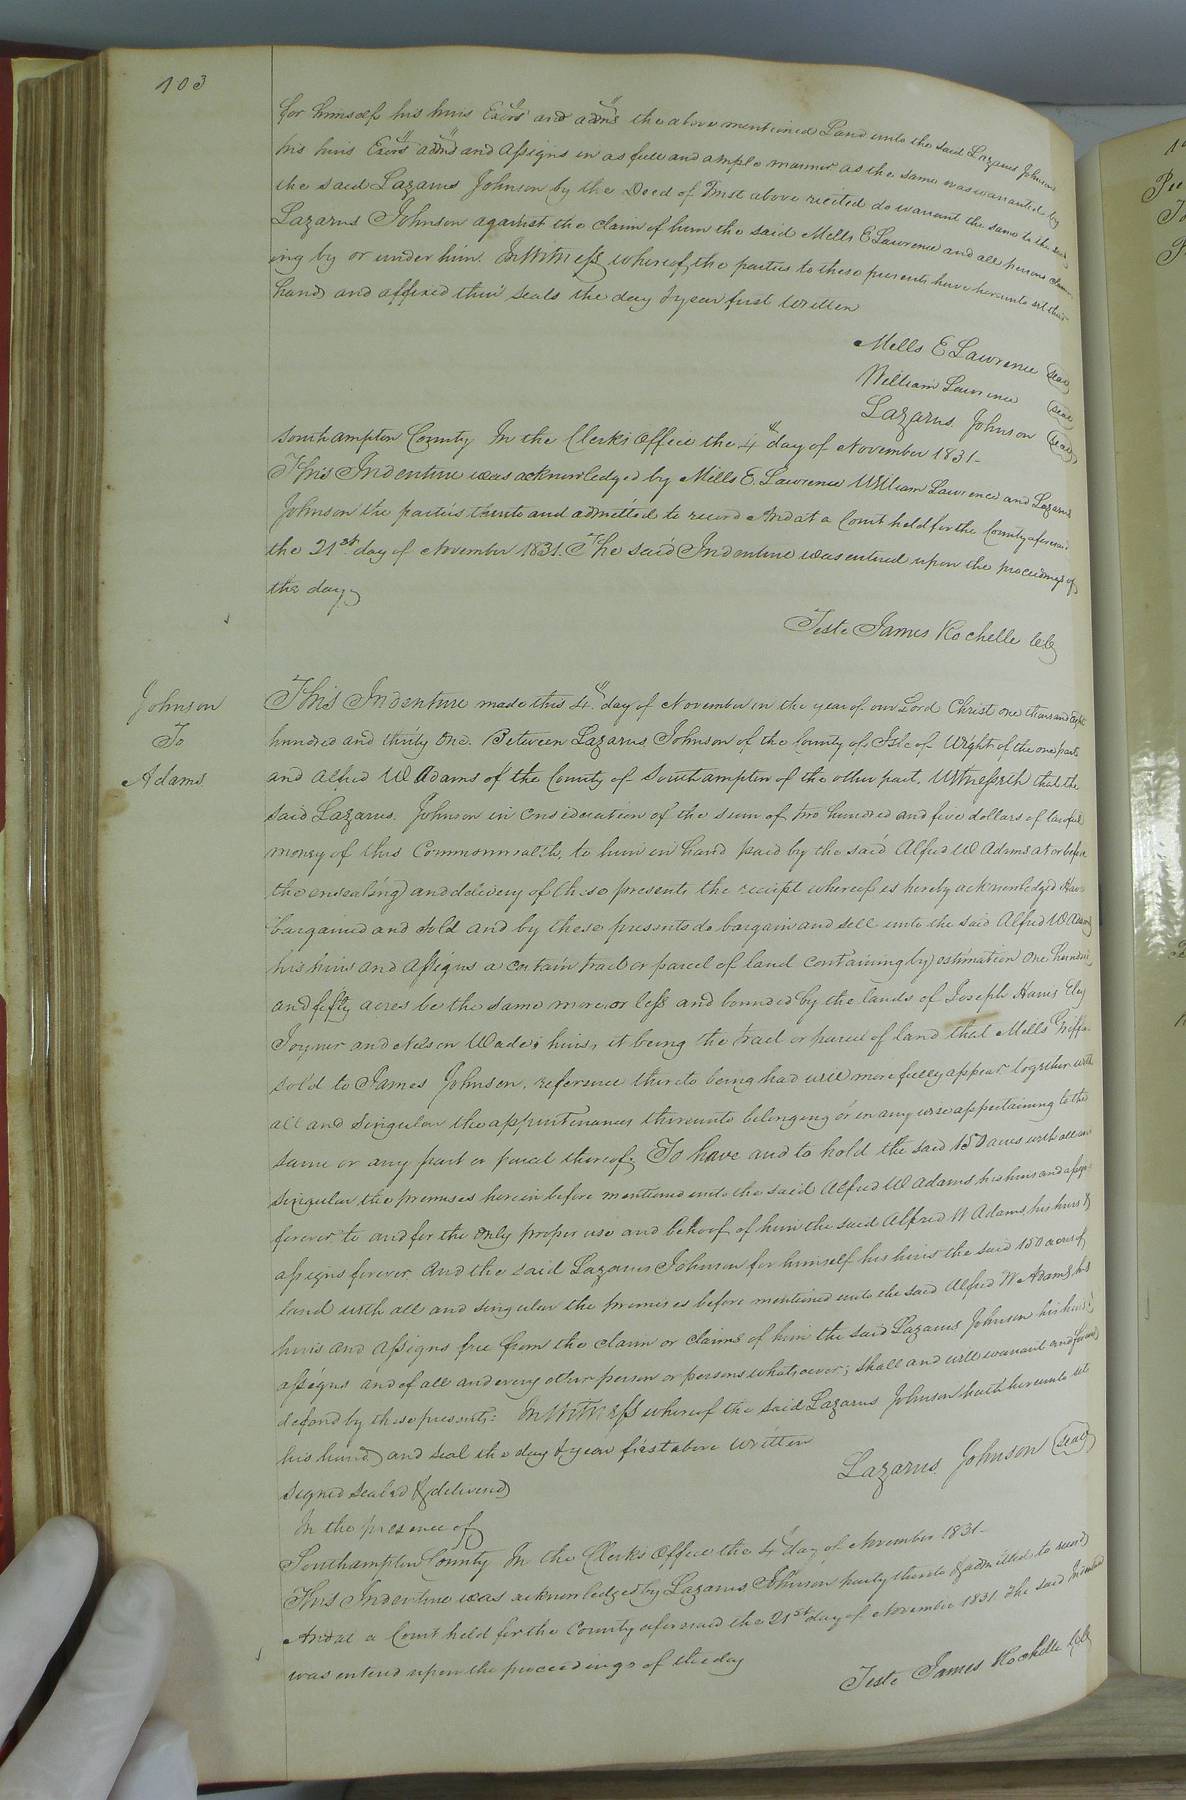 103
for himself his heirs Exors and admrs the above mentioned Land unto the said Lazarus Johnson
his heirs Exors admrs and assigns in as full and ample manner as the same was warranted by
the said Lazarus Johnson by the Deed of Trust above recited do warrant the same to the said
Lazarus Johnson against the claim of him the said Mells E Lawrence and all persons claim-
ing by or under him. In Witness whereof the parties to these presents have hereunto set their
hands and affixed their seals the day & year first Written
Mells E Lawrence (seal)
William Lawrence (seal)
Lazarus Johnson (seal)
Southampton County In the Clerk's Office the 4th day of November 1831-
This Indenture was acknowledged by Mells E. Lawrence William Lawrence and Lazarus
Johnson the parties thereto and admitted to record And at a Court held for the County aforesaid
the 21st day of November 1831. The said Indenture was entered upon the proceedings of
the day
Teste James Rochelle
Johnson
To
Adams
This Indenture made this 4th day of November in the year of our Lord Christ one thousand Eight
hundred and thirty One. Between Lazarus Johnson of the County of Isle of Wight of the one part
and Alfred W Adams of the County of Southampton of the other part. Witnesseth that the
said Lazarus Johnson in consideration of the sum of two hundred and five dollars of lawful
money of this Commonwealth, to him in hand paid by the said Alfred W Adams at or before
the ensealing and delivery of these presents the receipt whereof is hereby acknowledged Have
bargained and sold and by these presents do bargain and sell unto the said Alfred W Adams
his heirs and assigns a certain tract or parcel of land containing by estimation One hundred
and fifty acres be the same more or less and bounded by the lands of Joseph Harris Eley
Joyner and Nelson Wade's heirs, it being the tract or parcel of land that Mells Griffin
sold to James Johnson, reference thereto being had will more fully appear together with
all and singular the appurtenances thereunto belonging or in any wise appertaining to the
same or any part or parcel thereof. To have and to hold the said 150 acres with all and
singular the premises herein before mentioned unto the said Alfred W Adams, his heirs and assigns
forever to and for the only proper use and behoof of him the said Alfred W Adams, his heirs &
assigns forever And the said Lazarus Johnson for himself his heirs the said 150 acres of
land with all and singular the premises before mentioned unto the said Alfred W Adams his
heirs and assigns free from the claim or claims of him the said Lazarus Johnson his heirs &
assigns and of all and every other person or persons whatsoever; shall and will warrant and forever
defend by these presents: In Witness whereof the said Lazarus Johnson hath hereunto set
his hand and seal the day & year first above written
Lazarus Johnson (seal)
Signed sealed & delivered
In the presence of
Southampton County In the Clerk's Office the 4th day of November 1831-
This Indenture was acknowledged by Lazarus Johnson party thereto & admitted to record
And at a Court held for the County aforesaid the 21st day of November 1831. The said Indenture
was entered upon the proceedings of the day
Teste James Rochelle